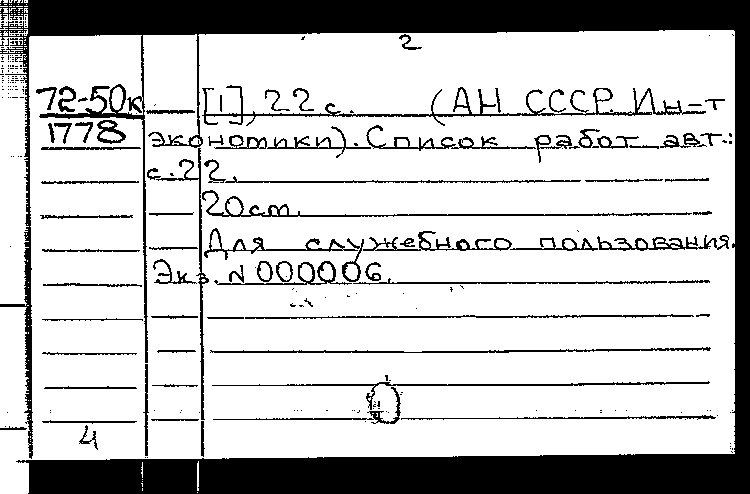 2
72-50к [1], 22 с. (АН СССР. Ин-т
1778 экономики). Список работ авт.:
с. 22.
20 cm.
Для служебного пользования.
Экз. N 000006.
4